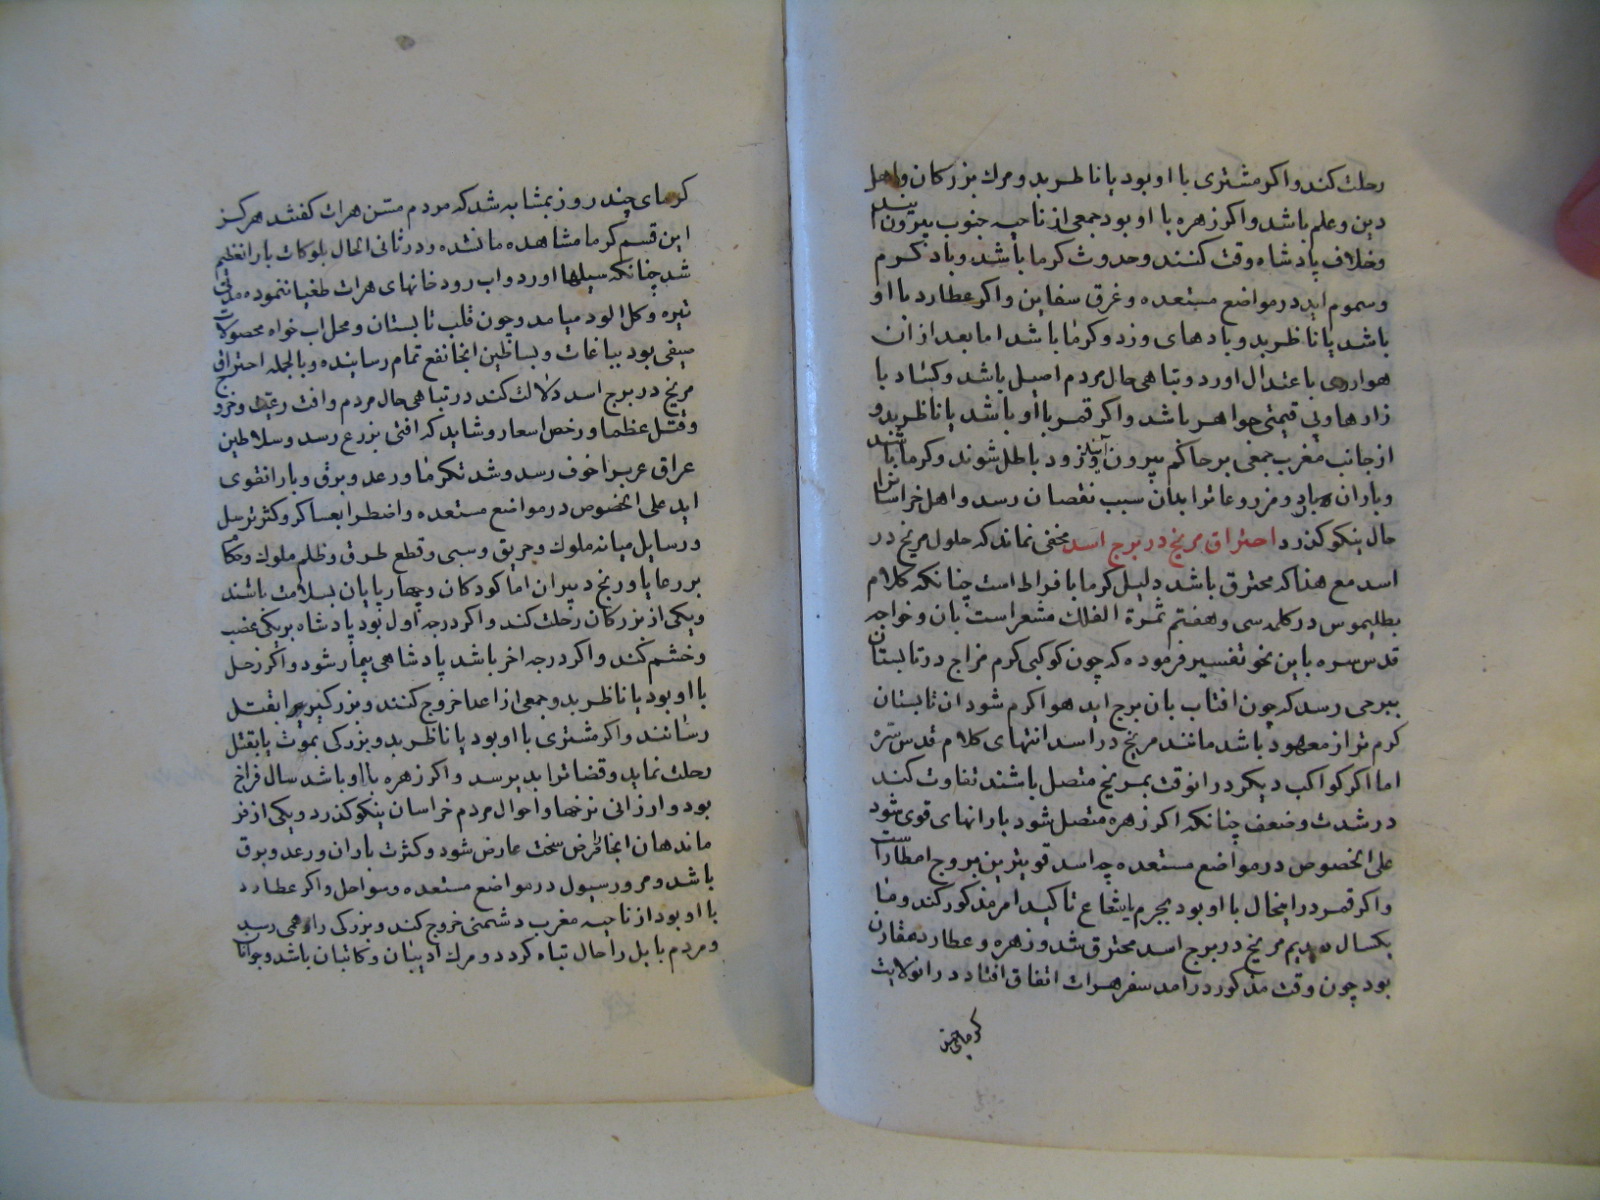 رحلت کند و اکر مشتری با او بود یا ناظر بد و مرك بزرکان و اهل
دین و علم باشد و اکر زهره با او بود جمعی از ناحیه جنوب بیرون ایند
و خلاف پادشاه وقت کنند و حدوث کرما باشد و باد کرم
و سموم اید در مواضع مستعده و غرق سفاین و اکر عطارد با او
باشد یا ناظر بد و بادهای وزد و کرما باشد اما بعد از ان
هوا روی با عتدال اورد و تباهی حال مردم اصیل باشد و کساد با
زارها و بی قیمتی جواهر باشد و اکر قمر با او باشد یا ناظر بد و
از جانب مغرب جمعی بر حاکم بیرون آیند و زود باطل شوند و کرما باشد
و باران بارد و مزروعاترا بدان سبب نقصان رسد و اهل خراسانرا
حال نیکو کذرد احتراق مریخ در برج اسد مخفی نماند که حلول مریخ در
اسد مع هذا که محترق باشد دلیل کرما بافراط است چنانکه کلام
بطلیموس در کلمه سی و هفتم ثمرة الفلك مشعر است بان و خواجه
قدس سره باین نحو تفسیر فرموده که چون کوکبی کرم مزاج در تابستان
ببرجی رسد که چون افتاب بان برج اید هوا کرم شود ان تابستان
کرم تر از معهود باشد مانند مریخ در اسد انتهای کلام قدس سره
اما اکر کواکب دیکر در انوقت بمریخ متصل باشند تفاوت کند
در شدت و ضعف چنانکه اکر زهره متصل شود بارانهای قوی شود
علی الخصوص در مواضع مستعده چه اسد قویترین بروج امطار است
و اکر قمر در اینحال با او بود بجرم یا شعاع تاکید امر مذکور کند و ما
یکسال دیدیم مریخ در برج اسد محترق شد و زهره و عطارد مقارن
بود چون وقت مذکور در امد سفر هرات اتفاق افتاد در انولایت
کرمای چند
کرمای چند روز بمثابه شد که مردم مسن هرات کفتند هرکز
این قسم کرما مشاهده ما نشده و در ثانی الحال بلوکات باران عظیم
شد چنانکه سیلها اورد و اب رود خانهای هرات طغیان نموده مدتی
تیره و کل الود میامد و چون قلب تابستان و محل اب خواه محصولات
صیفی بود بباغات و بساتین انجا نفع تمام رسانیده و بالجمله احتراق
مریخ در برج اسد دلالت کند در تباهی حال مردم و افت رعیت و خروج
و قتل عظما و رخص اسعار و شاید که افتی بزرع رسد و سلاطین
عراق عرب را خوف رسد و شدت کرما و رعد و برق و باران قوی
اید علی الخصوص در مواضع مستعده و اضطراب عساکر و کثرت رسل
و رسایل میانه ملوك و حریق و سبی و قطع طرق و ظلم ملوك و حکام
بر رعایا و رنج دبیران اما کودکان و چهار پایان بسلامت باشند
و یکی از بزرکان رحلت کند و اکر درجه اول بود پادشاه بر یکی غضب
و خشم کند و اکر درجه اخر باشد پادشاهی بیمار شود و اکر زحل
با او بود یا ناظر بد و جمعی از اعدا خروج کنند و بزرکی را بقتل
رسانند و اکر مشتری با او بود یا ناظر بد و بزرکی بموت یا بقتل
رحلت نماید و قضاترا بد برسد و اکر زهره با او باشد سال فراخ
بود و ارزانی نرخها و احوال مردم خراسان نیکو کذرد و یکی از فر
ماندهان انجا را مرض سخت عارض شود و کثرت باران و رعد و برق
باشد و مرور سیول در مواضع مستعده و سواحل و اکر عطارد
با او بود از ناحیه مغرب دشمنی خروج کند و بزرکی را وهمی رسد
و مردم بابل را حال تباه کردد و مرك ادیبان و کاتبان باشد و جوانان